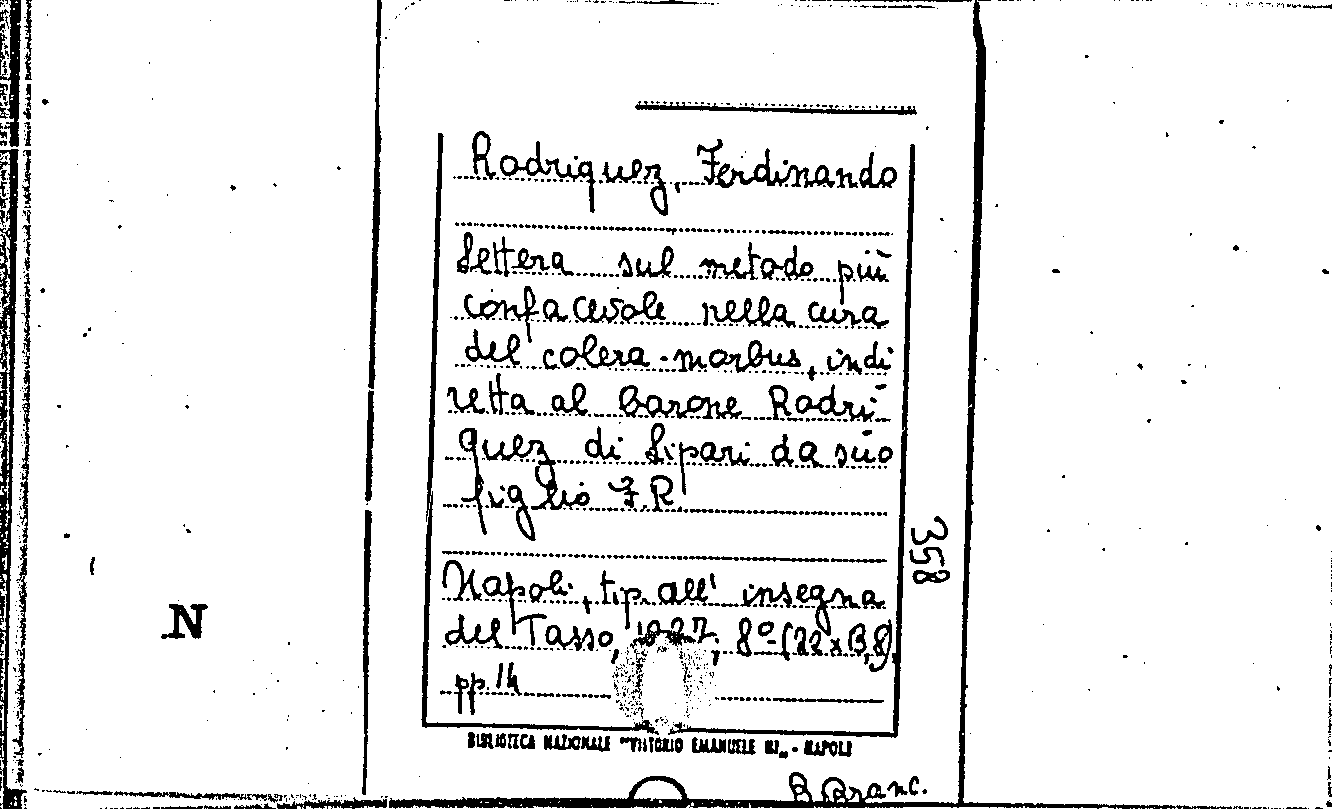 Rodriquez, Ferdinando
Lettera sul metodo più
confacevole nella cura
del colera-morbus, indi
retta al barone Rodri-
quez di Lipari da suo
figlio F.R.
358
Napoli, tip. all' insegna
del Tasso, 8º-(22x13,8),
pp. 14
N
BIBLIOTECA NAZIONALE "VITTORIO EMANUELE III" - NAPOLI
B. Branc.